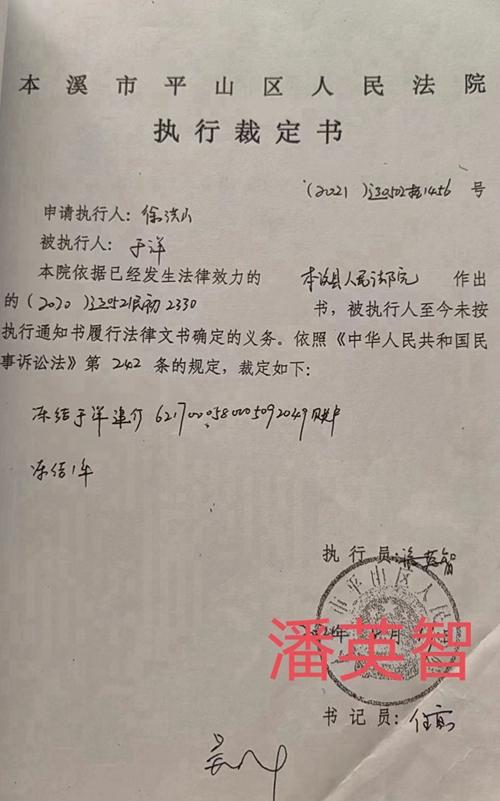 本溪市平山区人民法院
执行裁定书
(2021)辽0502执1456 号
申请执行人：徐洪山
被执行人：于洋
本院依据已经发生法律效力的 本溪县人民法院 作出
的(2020)辽0521民初2330 书，被执行人至今未按
执行通知书履行法律文书确定的义务。依照《中华人民共和国民
事诉讼法》第 242 条的规定，裁定如下：
冻结于洋建行 6217000580005092049账户
冻结1年
执行员：潘英智
市平山区人民
年 月
潘英智
书记员：